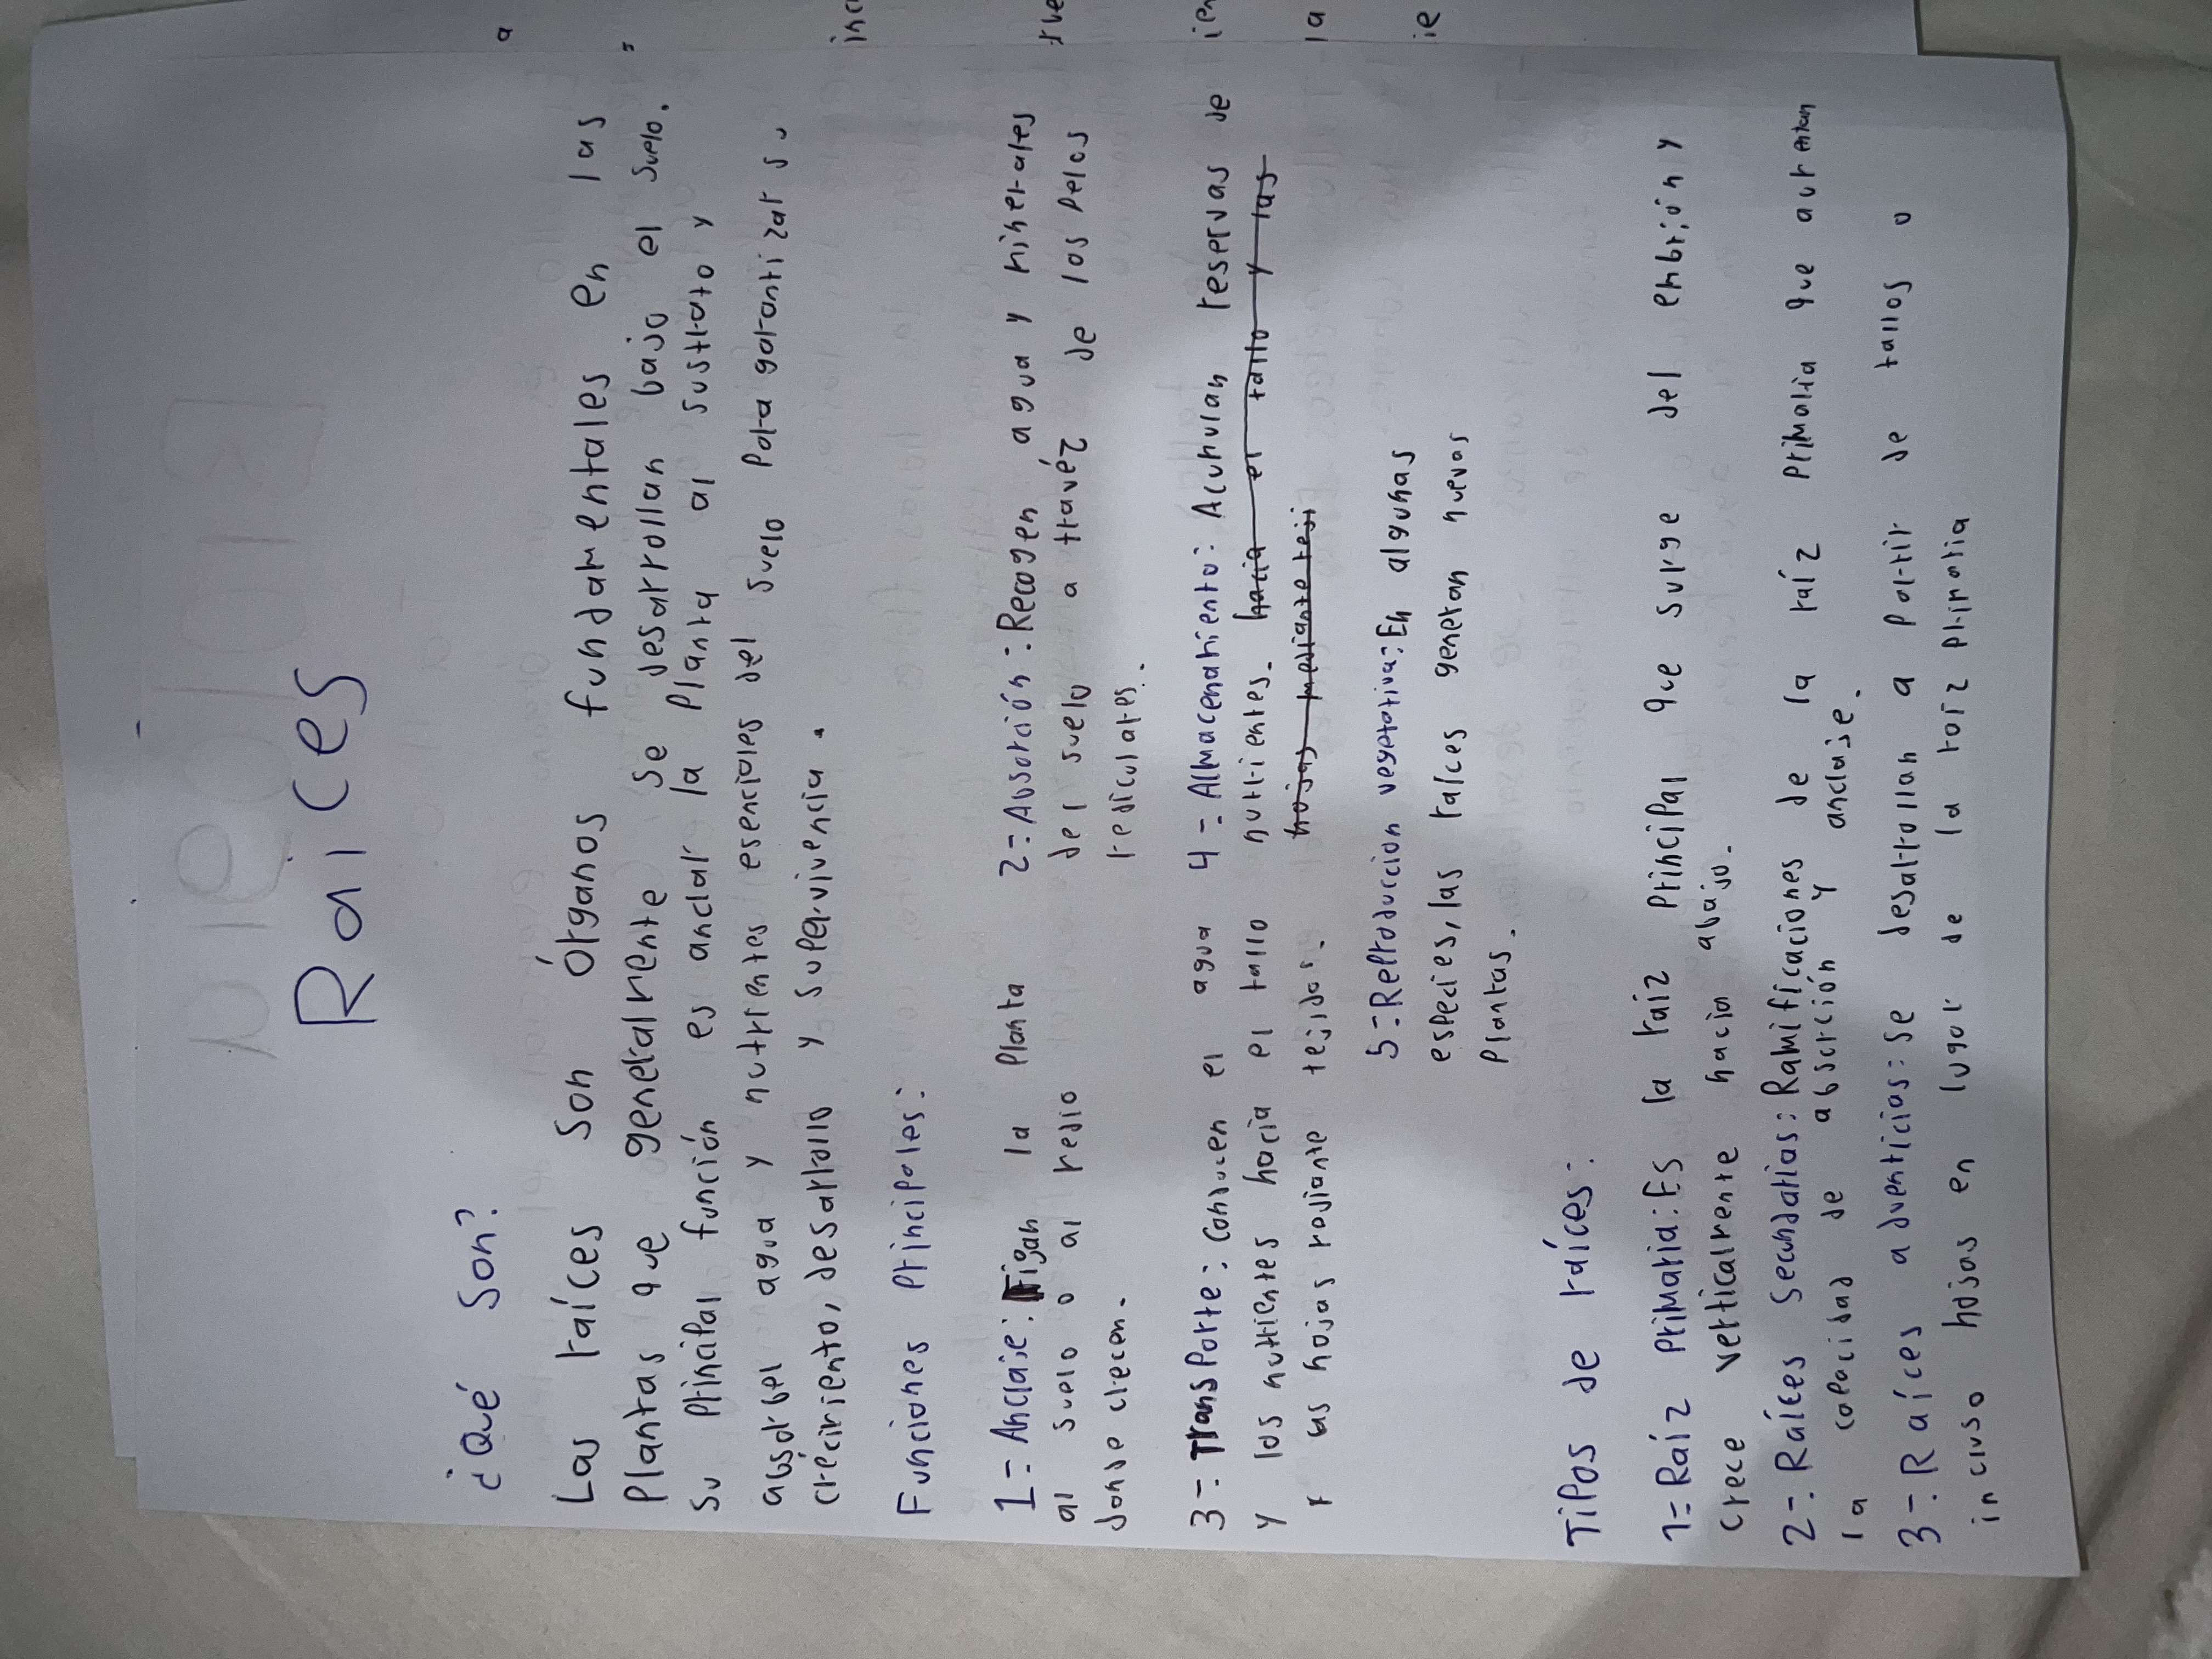 Raíces
¿Qué Son?
Las raíces Son Órganos fundamentales en las
Plantas que generalmente se desarrollan bajo el suelo.
Su Principal función es anclar la Planta al sustrato y
absorber agua y nutrientes esenciales del suelo Para garantizar su
crecimiento, desarrollo y supervivencia.
Funciones Principales:
1= Anclaje: Figan la Planta
al suelo o al medio
donde crecen.
2= Absorción: Recogen agua y minerales
del suelo a travéz de los Pelos
redículares.
3= Transporte: Conducen el agua
y los nutrientes hacia el tallo
y las hojas mediante tejidos.
4= Almacenamiento: Acumulan reservas de
nutrientes. hacia el tallo y las
hojas mediante teji
5= Reproducción vegetativa: En algunas
especies, las raíces generan nuevas
Plantas.
Tipos de raíces:
1= Raíz Primaria: Es la raíz Principal que surge del embrión y
crece verticalmente hacia abajo.
2= Raíces Secundarias: Ramificaciones de la raíz Primaria que aumentan
la capacidad de absorción y anclaje.
3= Raíces adventicias: Se desarrollan a Partir de tallos o
incluso hojas en lugar de la raíz Primaria